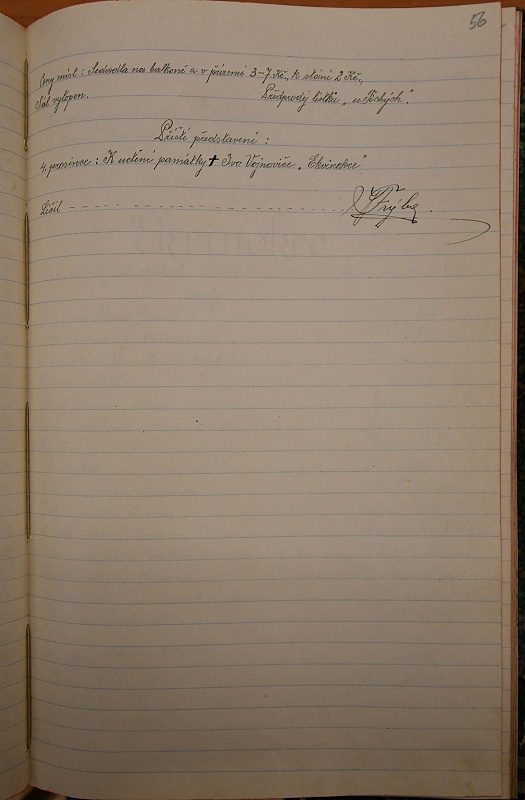 56
Ceny míst: Sedadla na balkoně a v přízemí 3-7 Kč, k stání 2 Kč,
Sál vytopen. Předprodej lístků „u Tichých".
Příští představení:
4. prosince: K uctění památky ✝ Ivo Vojnoviče „Ekvinokce"
Líčil